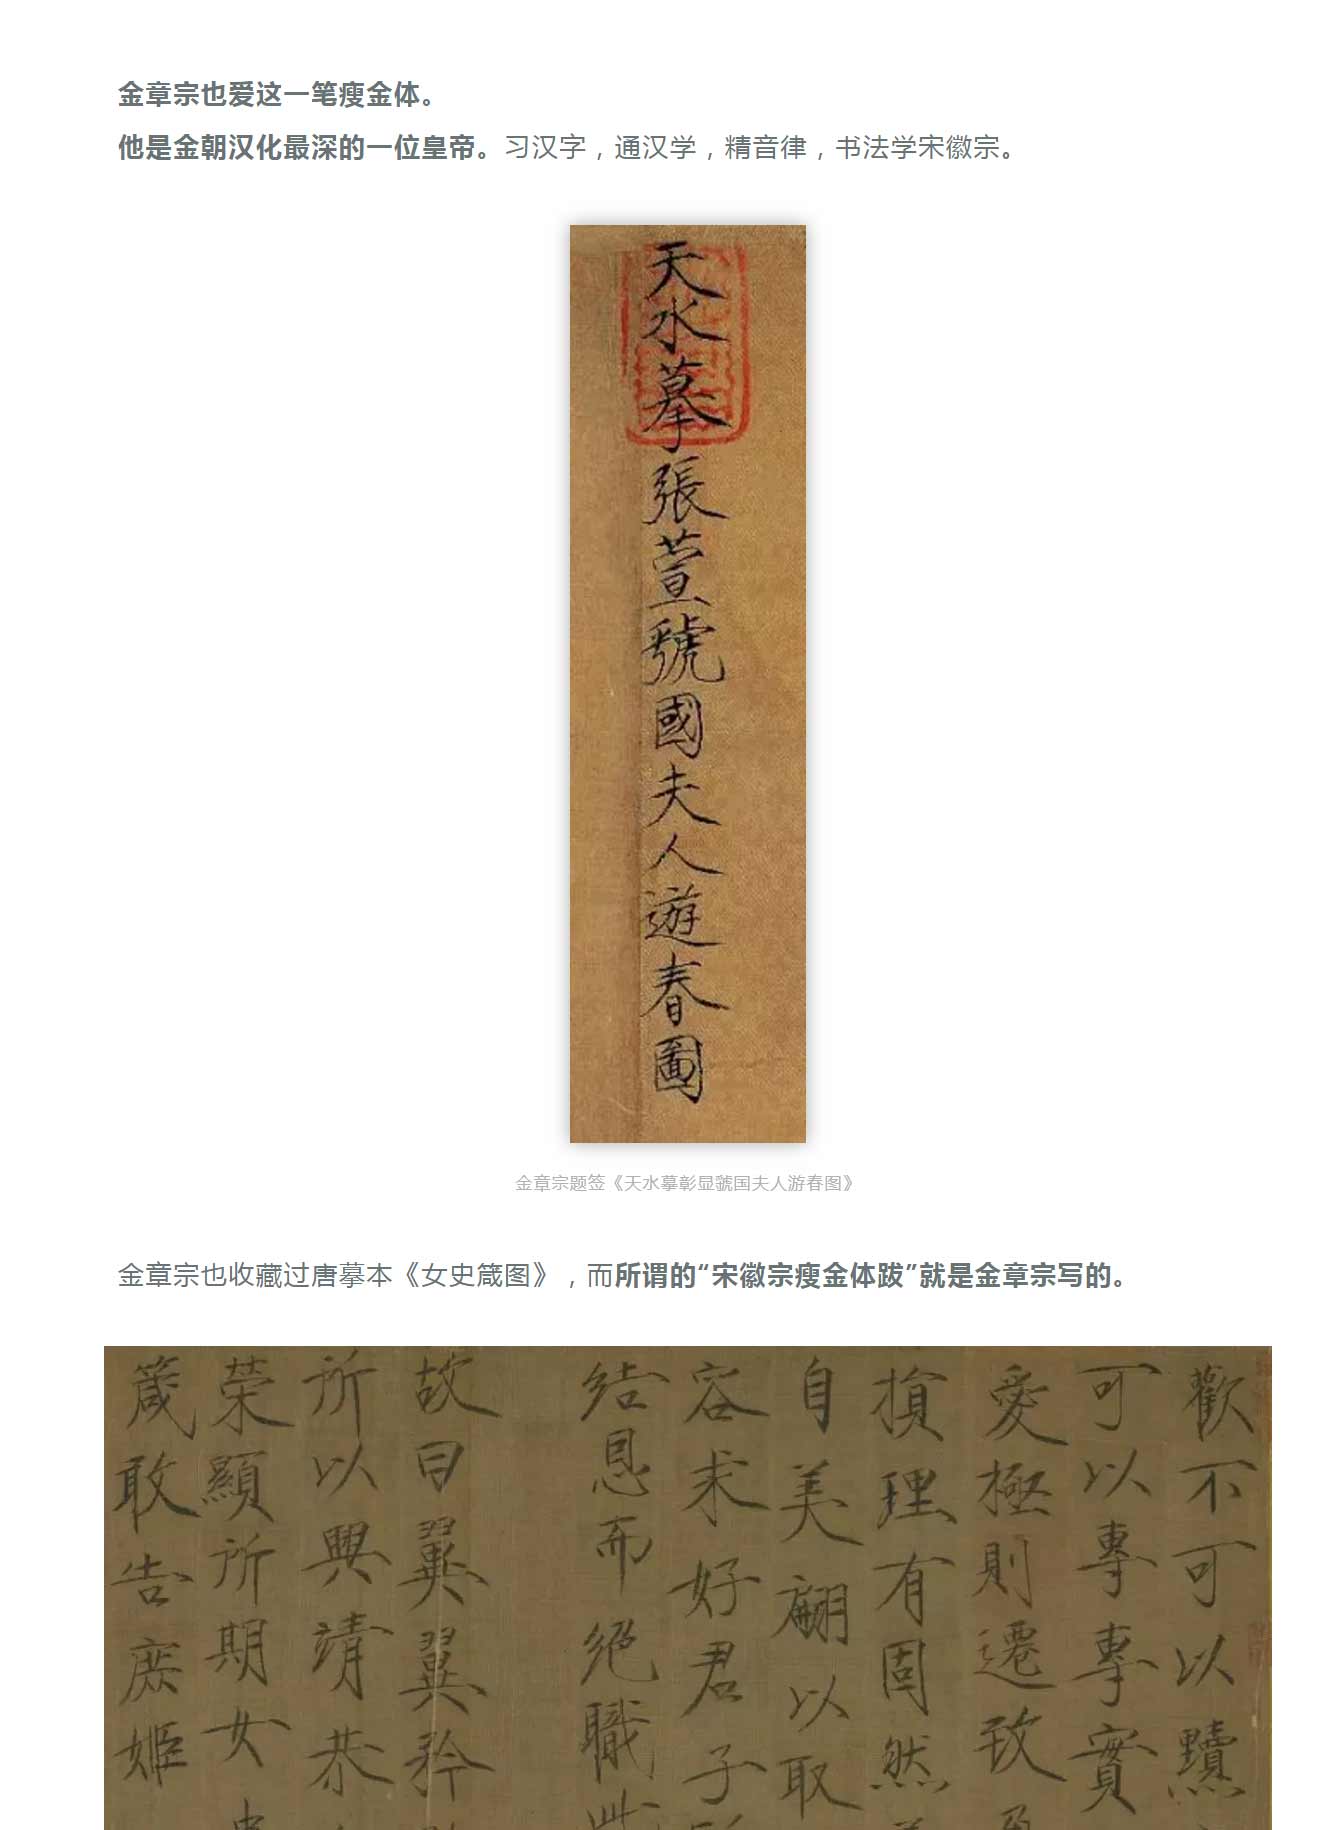 金章宗也爱这一笔瘦金体。
他是金朝汉化最深的一位皇帝。习汉字，通汉学，精音律，书法学宋徽宗。
天水摹張萱虢國夫人遊春圖
金章宗题签《天水摹彰显虢国夫人游春图》
金章宗也收藏过唐摹本《女史箴图》，而所谓的“宋徽宗瘦金体跋”就是金章宗写的。
歡不可以黷
可以專專實
愛極則遷致
損理有固然
自美翩以取
容求好君子
结恩而绝職
故曰翼翼矜
所以興靖恭
榮顯所期女
箴敢告庶姬